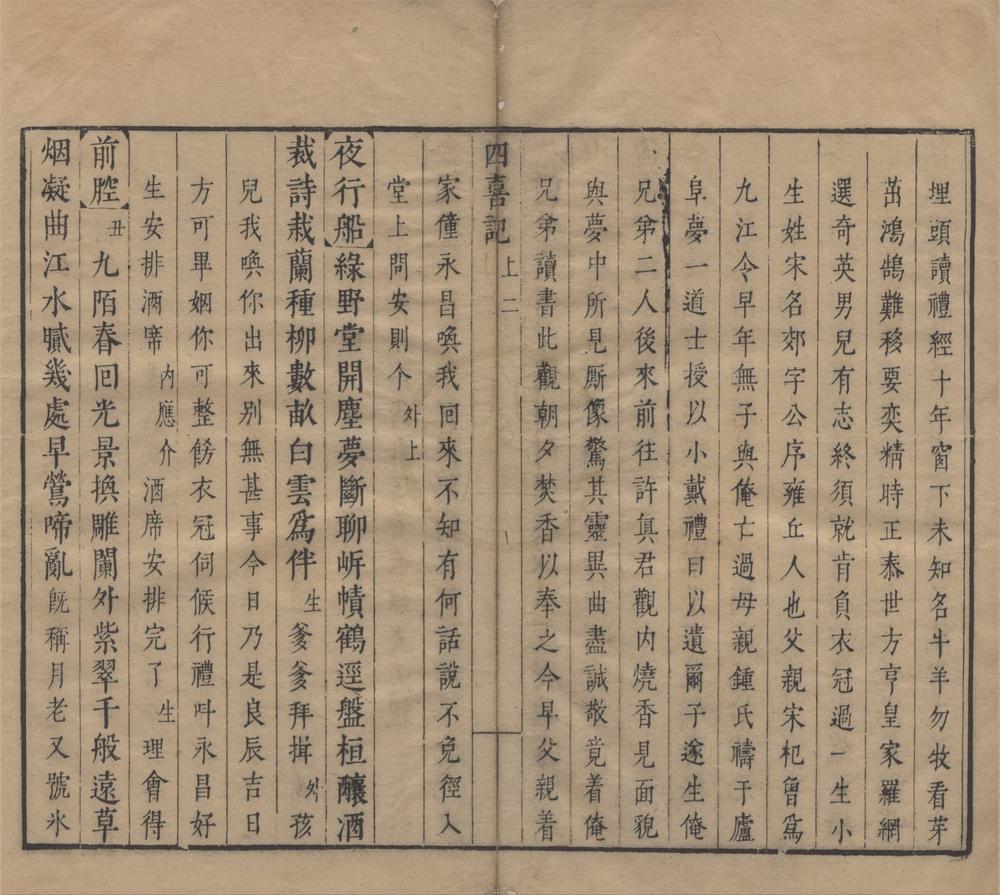 埋頭讀禮經十年窗下未知名牛羊勿牧看芽
茁鴻鵠難移要奕精時正泰世方亨皇家羅網
選奇英男兒有志終須就肯負衣冠過一生小
生姓宋名郊字公序雍丘人也父親宋杞曾爲
九江令早年無子與俺亡過母親鍾氏禱于廬
阜夢一道士授以小戴禮曰以遺爾子遂生俺
兄弟二人後來前往許眞君觀內燒香見面貌
與夢中所見厮像驚其靈異曲盡誠敬竟着俺
兄弟讀書此觀朝夕焚香以奉之今早父親着
四喜記 上 二
家僮永昌喚我回來不知有何話說不免徑入
堂上問安則个 外上
夜行船 綠野堂開塵夢斷聊岸幘鶴逕盤桓釀酒
裁詩栽蘭種柳數畝白雲爲伴 生 爹爹拜揖 外 孩
兒我喚你出來別無甚事今日乃是良辰吉日
方可畢姻你可整餙衣冠伺候行禮叫永昌好
生安排酒席 內應介 酒席安排完了 生 理會得
前腔 丑 九陌春回光景換雕闌外紫翠千般遠草
烟凝曲江水膩幾處早鶯啼亂旣稱月老又號氷